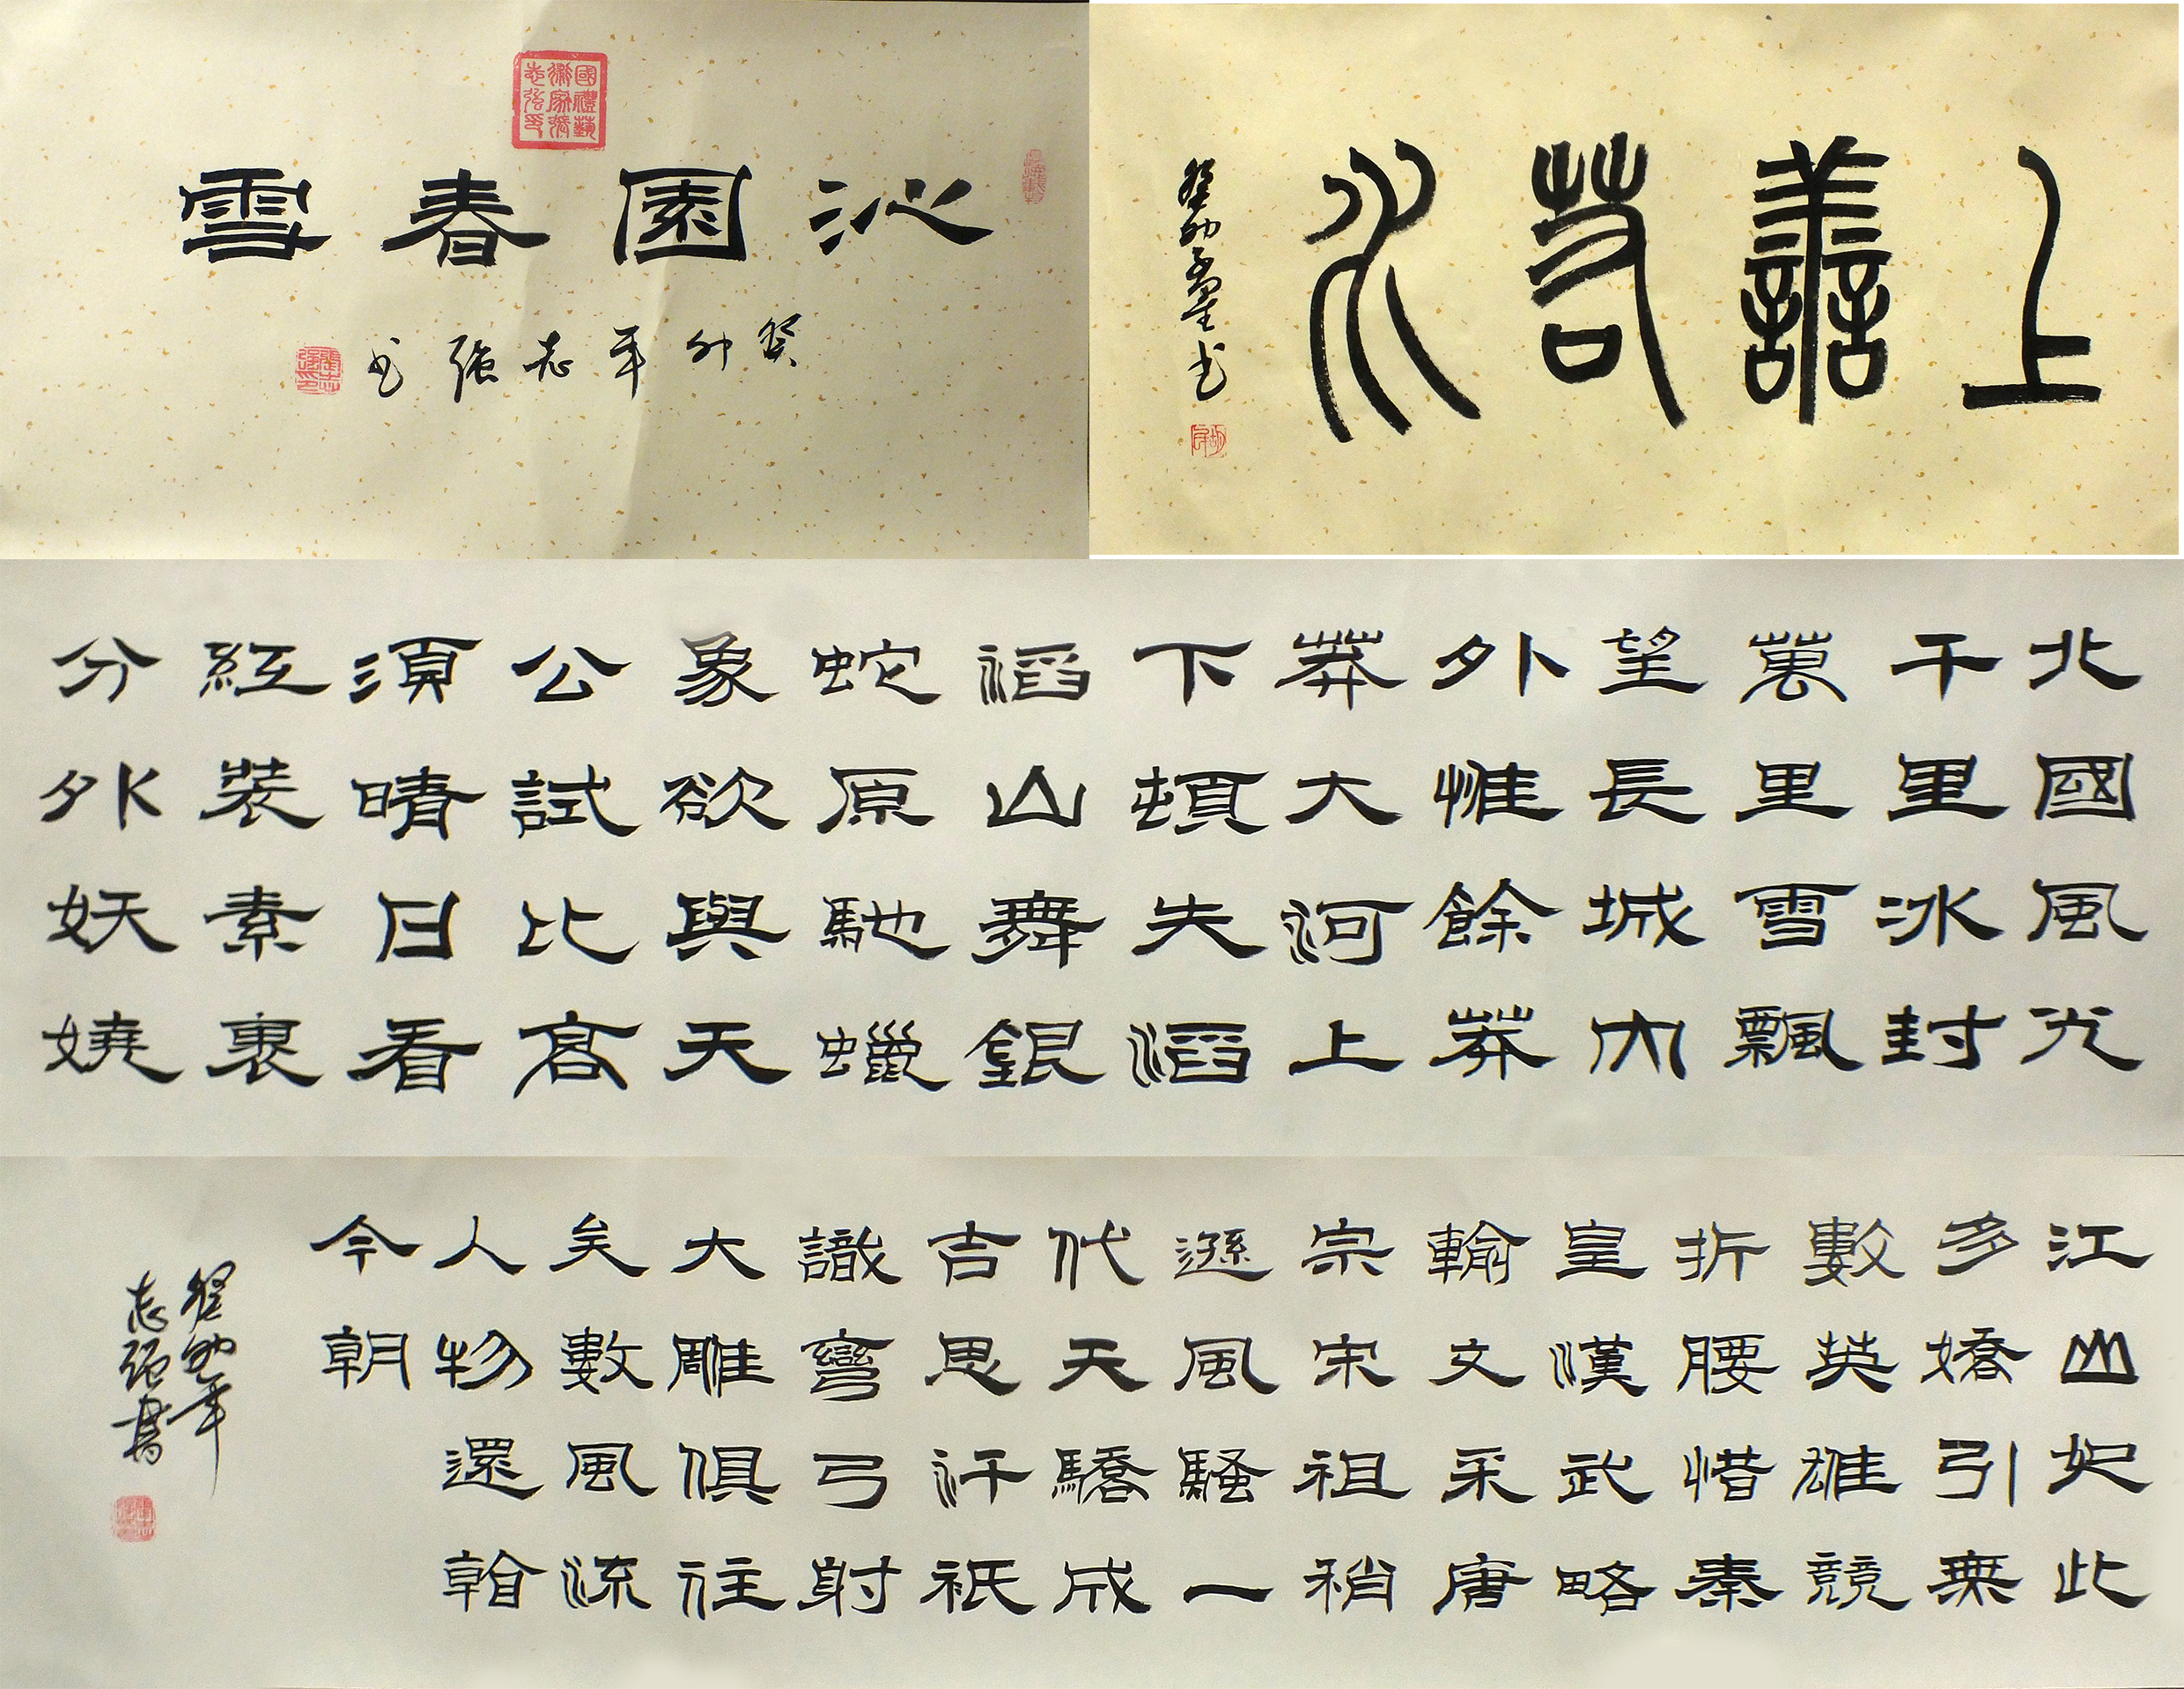 上善若水
癸卯 书
沁園春雪
國禮藝
術家張
志強印
癸卯年志強书
張志強印
北國風光
千里冰封
萬里雪飄
望長城內
外惟餘莽
莽大河上
下頓失滔
滔山舞銀
蛇原馳蠟
象欲與天
公試比高
須晴日看
紅裝素裹
分外妖嬈
江山如此
多嬌引無
數英雄競
折腰惜秦
皇漢武略
輸文采唐
宗宋祖稍
遜風騷一
代天驕成
吉思汗祇
識彎弓射
大雕俱往
矣數風流
人物還看
今朝
癸卯年
志強書